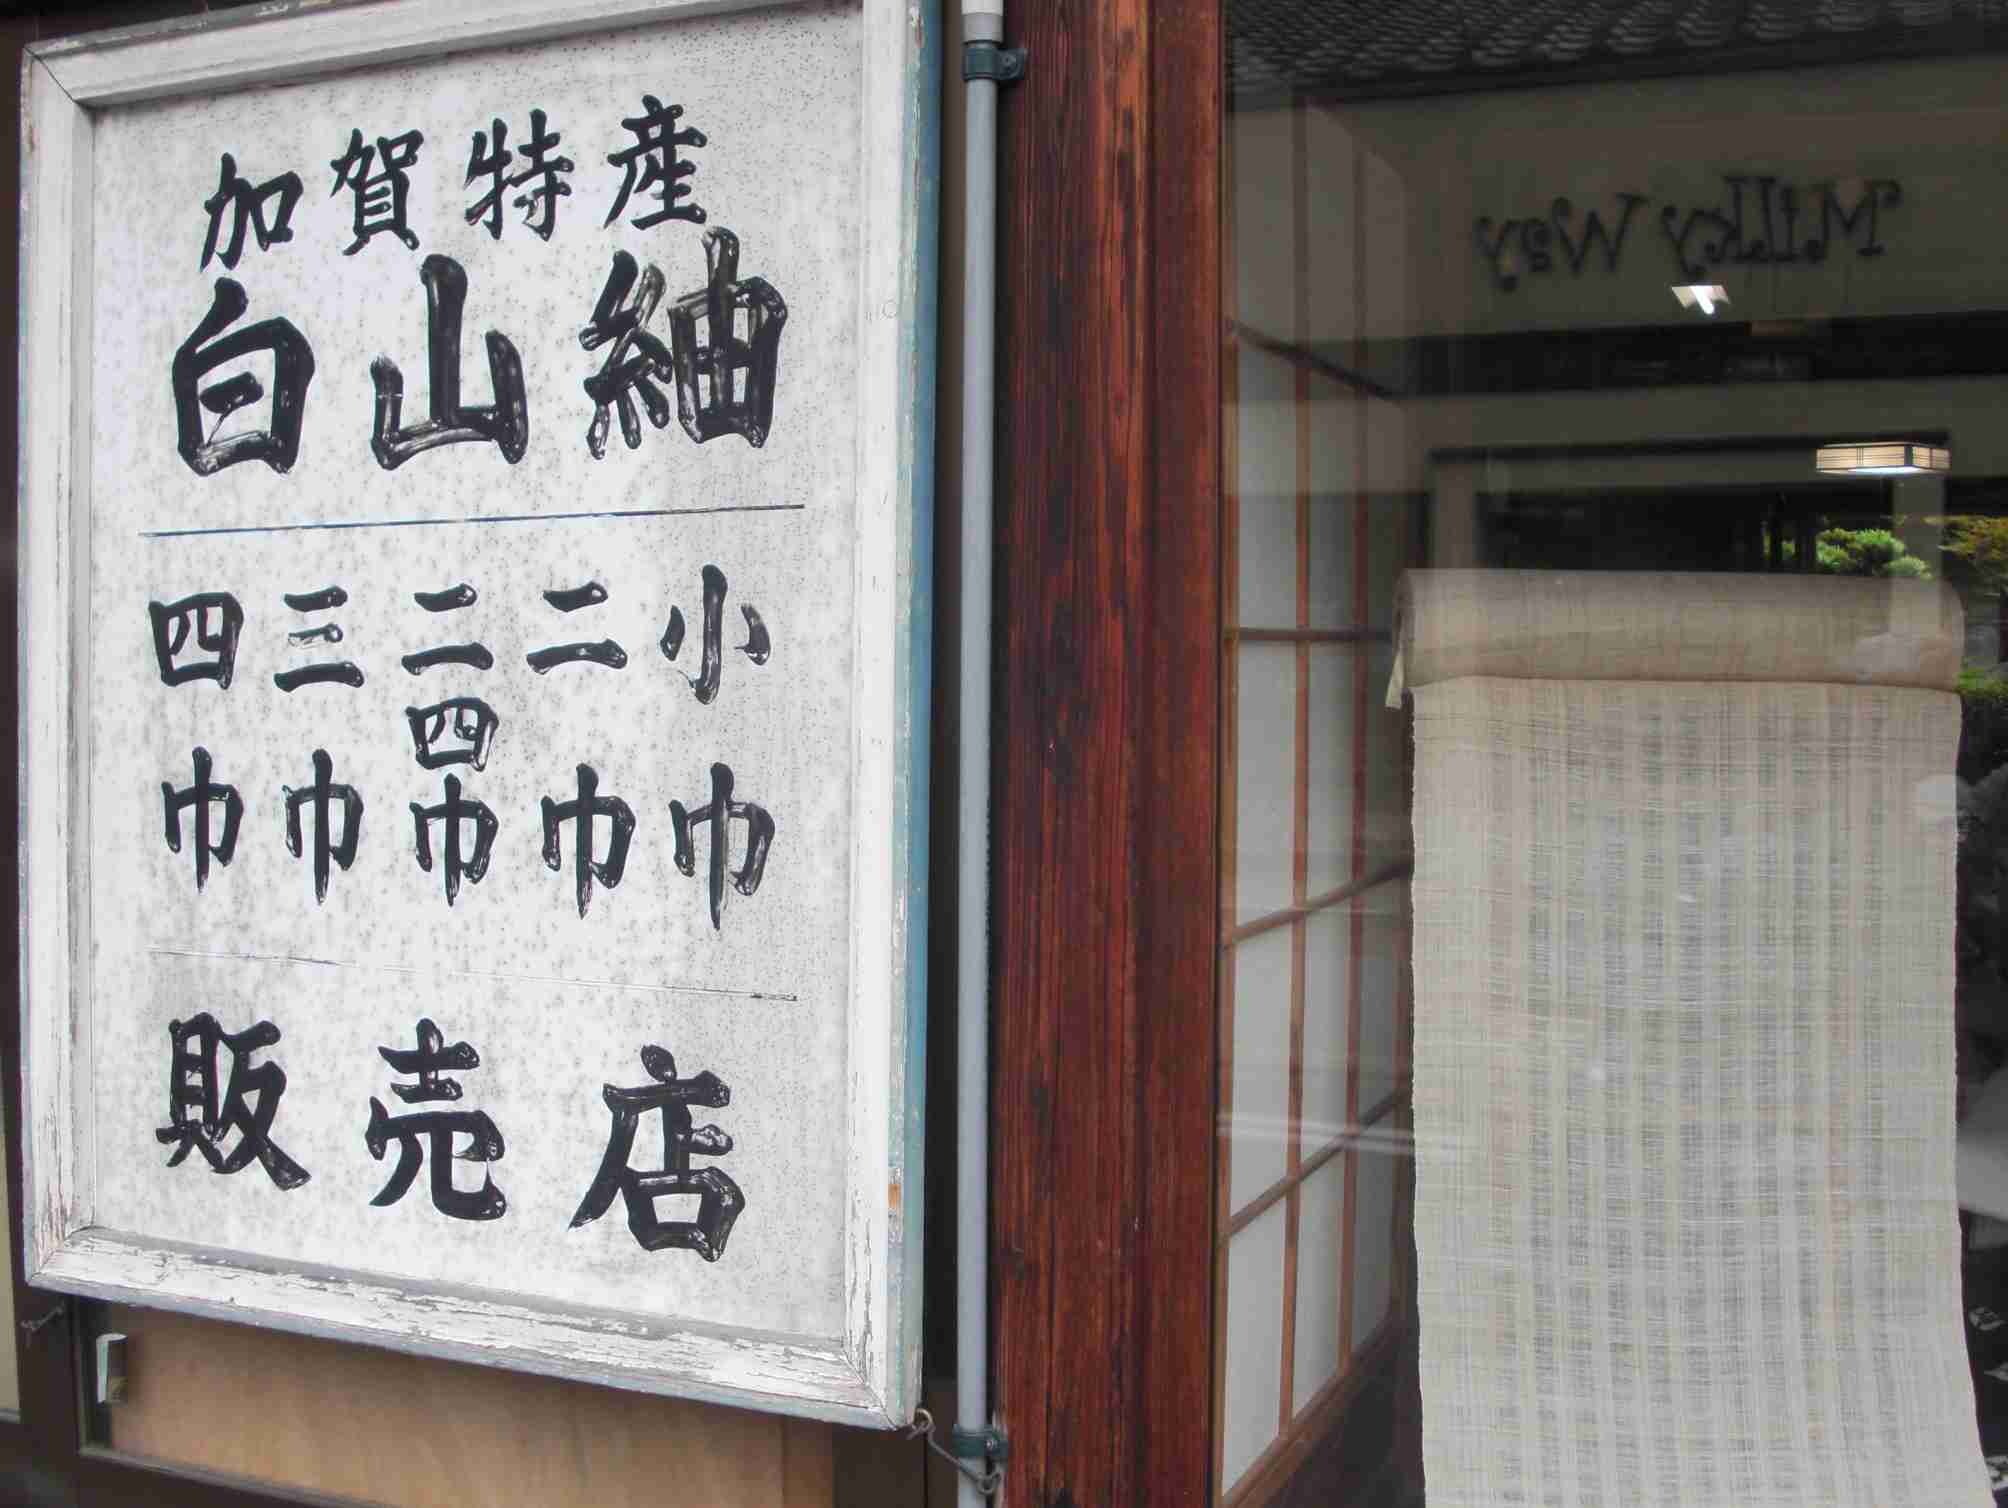 加賀特産
白山紬
小巾
二巾
二四巾
三巾
四巾
販売店
Milky Way